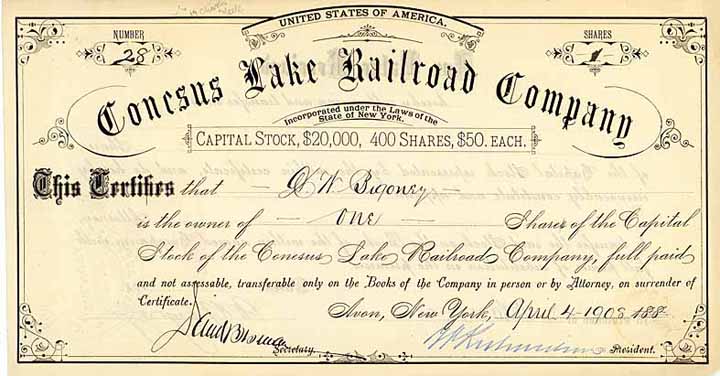 UNITED STATES OF AMERICA.
NUMBER
28
SHARES
1
Conesus Lake Railroad Company
Incorporated under the Laws of the
State of New York.
CAPITAL STOCK, $20,000, 400 SHARES, $50. EACH.
This Certifies that
is the owner of — One — Shares of the Capital
Stock of the Conesus Lake Railroad Company, full paid
and not assessable, transferable only on the Books of the Company in person or by Attorney, on surrender of
Certificate.
Avon, New York, April 4-1903 188
Secretary.
President.